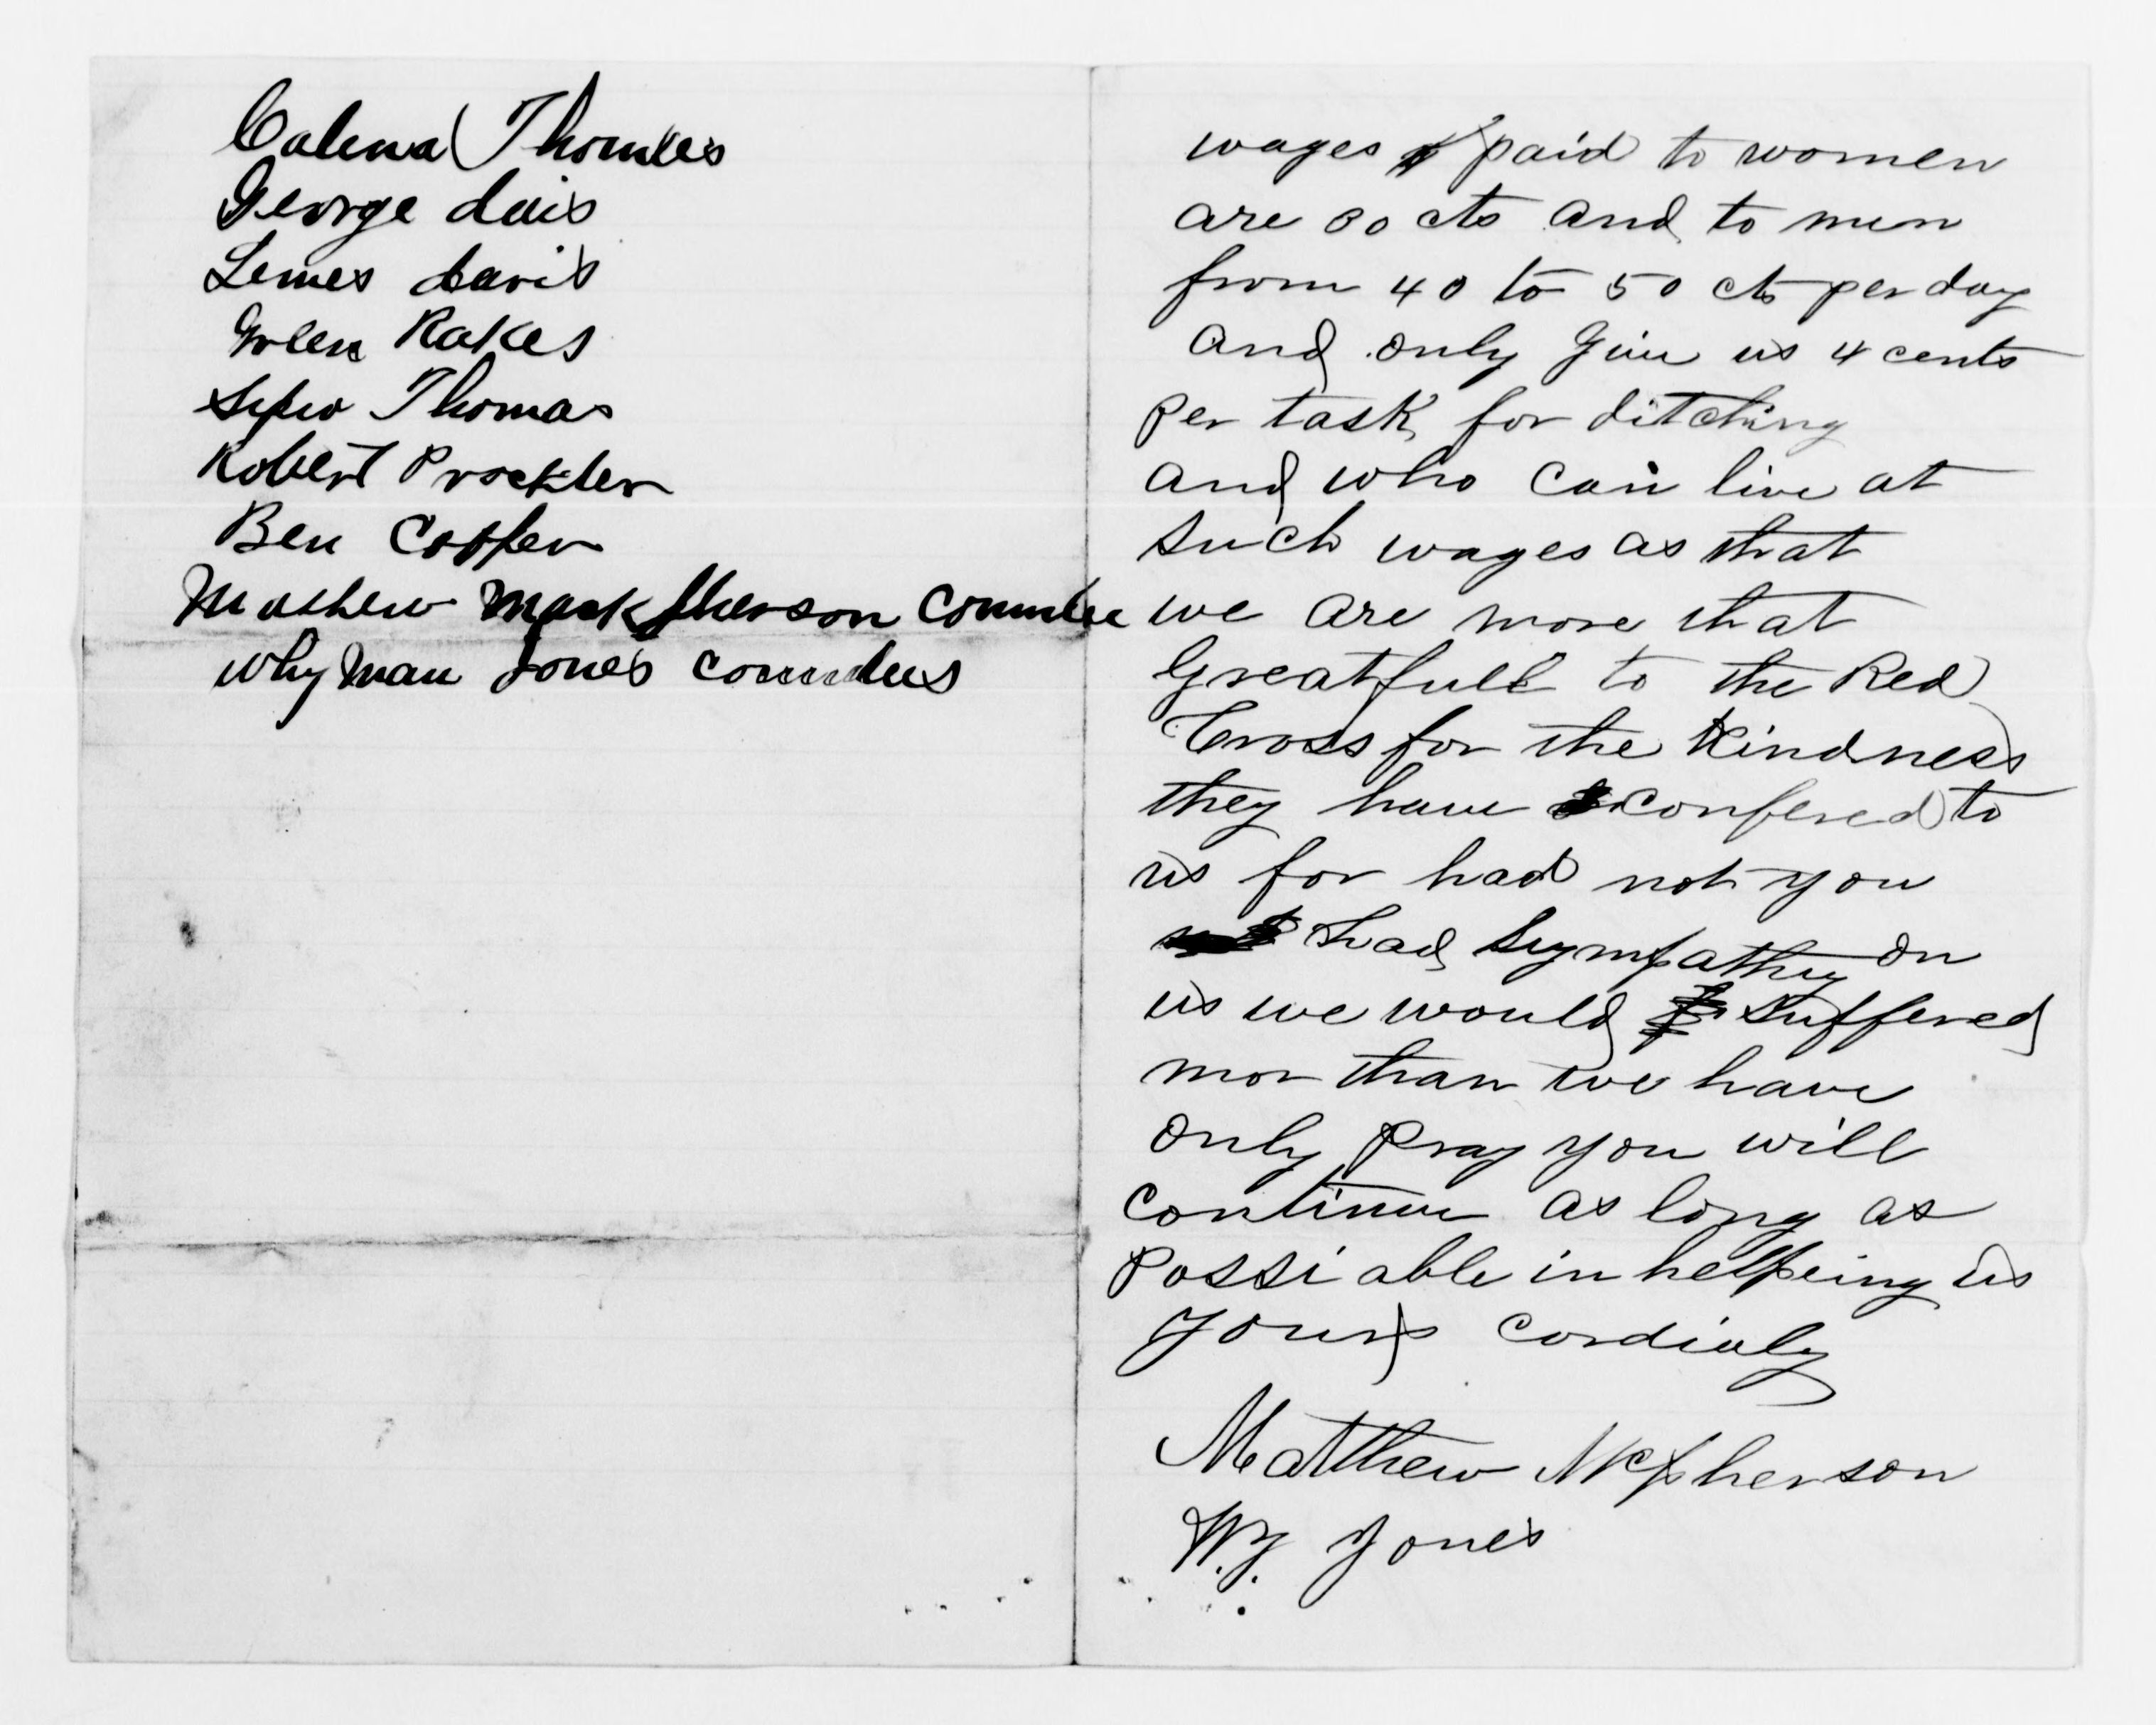 Thomles
George davis
Lemes davis
Rakes
Thomas
Robert Prockter
Ben Copper
Mathew Mackfherson Commtee
Whyman Jones
wages paid to women
are 30 cts and to men
from 40 to 50 cts per day
and only give us 4 cents
per task for ditching
and who can live at
such wages as that
we are more that
greatfull to the Red
Cross for the Kindness
they have confered to
us for had not you
had sympathy on
us we would suffered
mor than we have
only pray you will
continue as long as
Possiable in helpeing us
yours cordialy
Matthew McPherson
W. Y. Jones